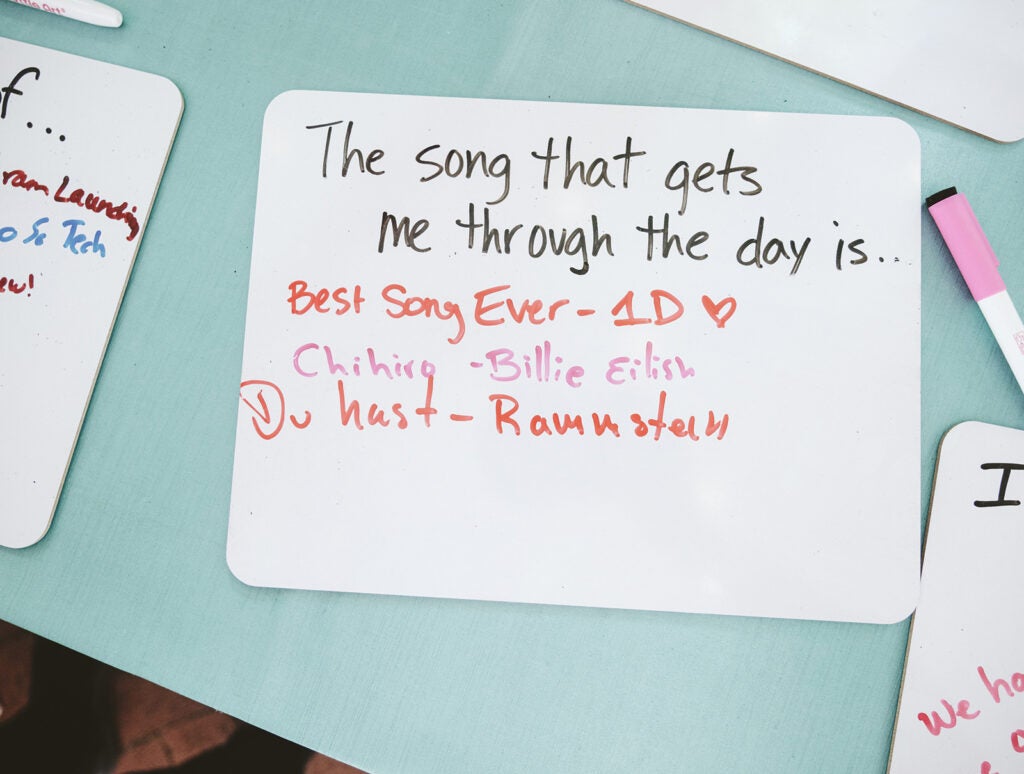 The song that gets
me through the day is...
Best Song Ever - 1D ♥
Chihiro - Billie Eilish
Du hast - Rammstein
f...
ram Laundry
So Tech
ew!
I
We ha